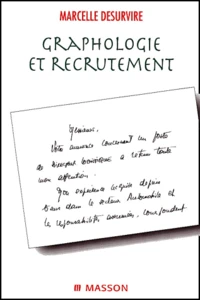 MARCELLE DESURVIRE
GRAPHOLOGIE
ET RECRUTEMENT
Messieurs,
Votre annonce concernant un poste
de Directeur Commercial a retenu toute
mon attention.
Mon expérience acquise depuis
ans dans le secteur Automobile et
les responsabilités assumées, correspondent
MASSON